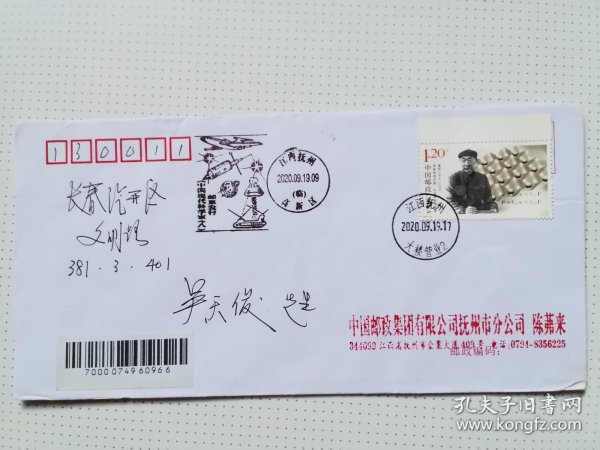 130011
长春汽开区
文明路
381.3.401
吴天俊 先生
7000074960966
中国现代科学家(八)
邮票发行
江西抚州
2020.09.19.09
(临)
高新区
1.20
中国邮政
江西抚州
2020.09.19.17
大楼营业2
中国邮政集团有限公司抚州市分公司 陈茀来
344000 江西省抚州市金巢大道 号 电话:0794-8356225
邮政编码:
孔夫子旧书网
kongfz.com